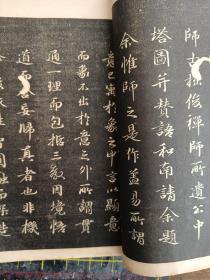 師古拙俊禪師所遺公中
塔圖并贊語和南請余題
余惟師之是作蓋易所謂
已寓於象之中言以顯意
而象不出於意之外所謂貫
通一理而包括三教因境悟
道妙歸真者也非機